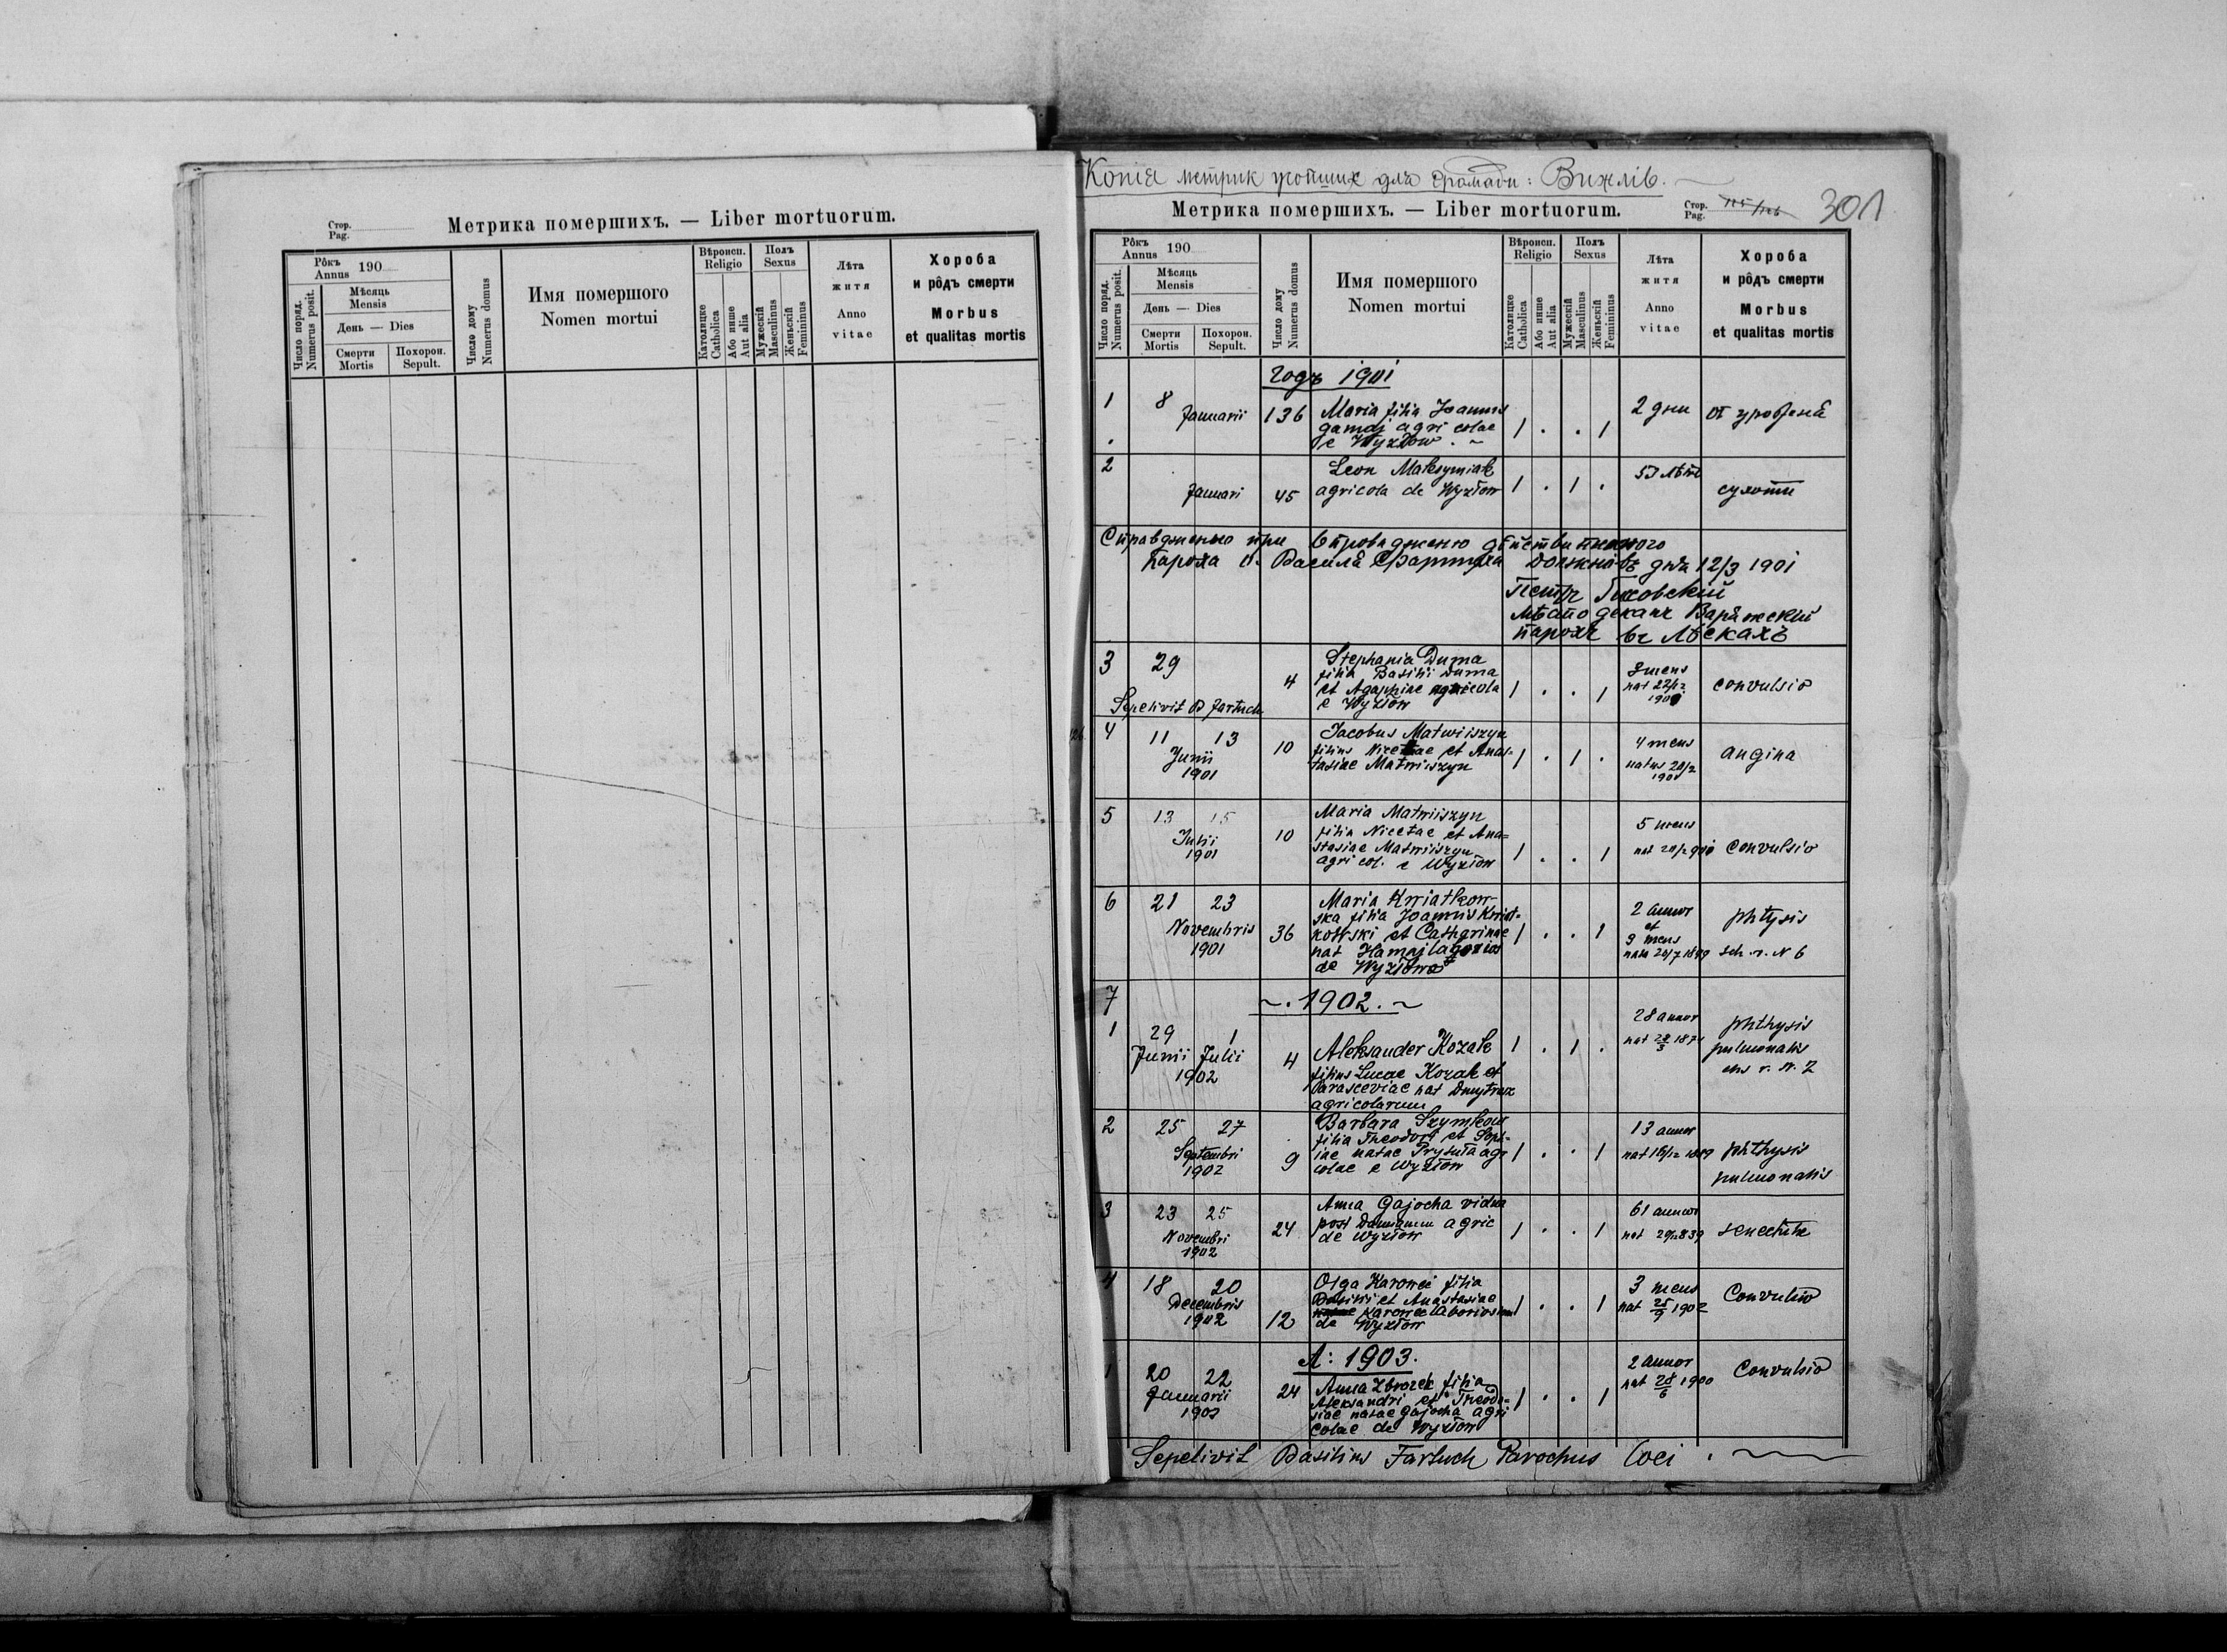 Стор.
Pag.
Метрика помершихъ. — Liber mortuorum.
Рôкъ
Annus 190
Число поряд.
Numerus posit.
Мѣсяць
Mensis
День — Dies
Смерти
Mortis
Похорон.
Sepult.
Число дому
Numerus domus
Имя помершого
Nomen mortui
Вѣроисп.
Religio
Католицке
Catholica
Або инше
Aut alia
Полъ
Sexus
Мужескій
Masculinus
Женьскій
Femininus
Лѣта
житя
Anno
vitae
Хороба
и рôдъ смерти
Morbus
et qualitas mortis
Копія метрик для громади: Вижлів.
Метрика помершихъ. — Liber mortuorum.
Стор.
Pag.
301
Рôкъ
Annus 190
Число поряд.
Numerus posit.
Мѣсяць
Mensis
День — Dies
Смерти
Mortis
Похорон.
Sepult.
Число дому
Numerus domus
Имя помершого
Nomen mortui
Вѣроисп.
Religio
Католицке
Catholica
Або инше
Aut alia
Полъ
Sexus
Мужескій
Masculinus
Женьскій
Femininus
Лѣта
житя
Anno
vitae
Хороба
и рôдъ смерти
Morbus
et qualitas mortis
Годъ 1901
1 8 Januarii 136 Maria filia Joannis
agricolae
e Wyzłow
1 . . 1 2 дни
2 Januari 45 Leon Maksymiak
agricola de Wyzłow
1 . 1 . сухоти
Справджено при
пароха о. Василя Фартуха дня 12/3 1901
Петръ
деканъ Варяжскій
парохъ въ Лѣскахъ
3 29 4 Stephania Duma
filia Basilii Duma
et Agaphiae agricola
e Wyzłow
1 . . 1 mens
nat 22/12
convulsio
Sepelivit B Fartuch
4 11 13 Junii 1901 10 Jacobus Matwiiszyn
filius Nicetae et Anas-
tasiae Matwiiszyn
1 . 1 . 4 mens
natus
angina
5 13 15 Julii 1901 10 Maria Matwiiszyn
filia Nicetae et Ana=
stasiae Matwiiszyn
agricol. e Wyzłow
1 . . 1 5 mens
nat
convulsio
6 21 23 Novembris 1901 36 Maria Kwiatkow-
ska filia Joannis Kwiat-
kowski et Catharinae
nat
de Wyzłow
1 . . 1 2 annor
et
9 mens
phtysis
sch. r. N 6
7
1902.
1 29 1 Junii Julii 1902 4 Aleksander Kozak
filius Lucae Kozak et
Parasceviae nat
agricolarum
1 . 1 . 28 annor
nat
phthysis
pulmonalis
r. N. 2
2 25 27 Septembri 1902 9 Barbara Szymkow
filia Theodori et Soph-
iae natae Prysuta agri
colae e Wyzłow
1 . . 1 13 annor
nat
phthysis
pulmonalis
3 23 25 Novembri 1902 24 Anna Gajocha vidua
post agric
de Wyzłow
1 . . 1 61 annor
nat
senectute
4 18 20 Decembris 1902 12 Olga Karowec filia
Basilii et Anastasiae
Karowec
de Wyzłow
1 . . 1 3 mens
nat 25/9 1902
Convulsio
A: 1903.
1 20 22 Januarii 1903 24 Anna Zbrozek filia
Aleksandri et Theodo-
siae natae Gajocha agri
colae de Wyzłow
1 . . 1 2 annor
nat 28/6 1900
Convulsio
Sepelivit Basilius Fartuch Parochus loci.